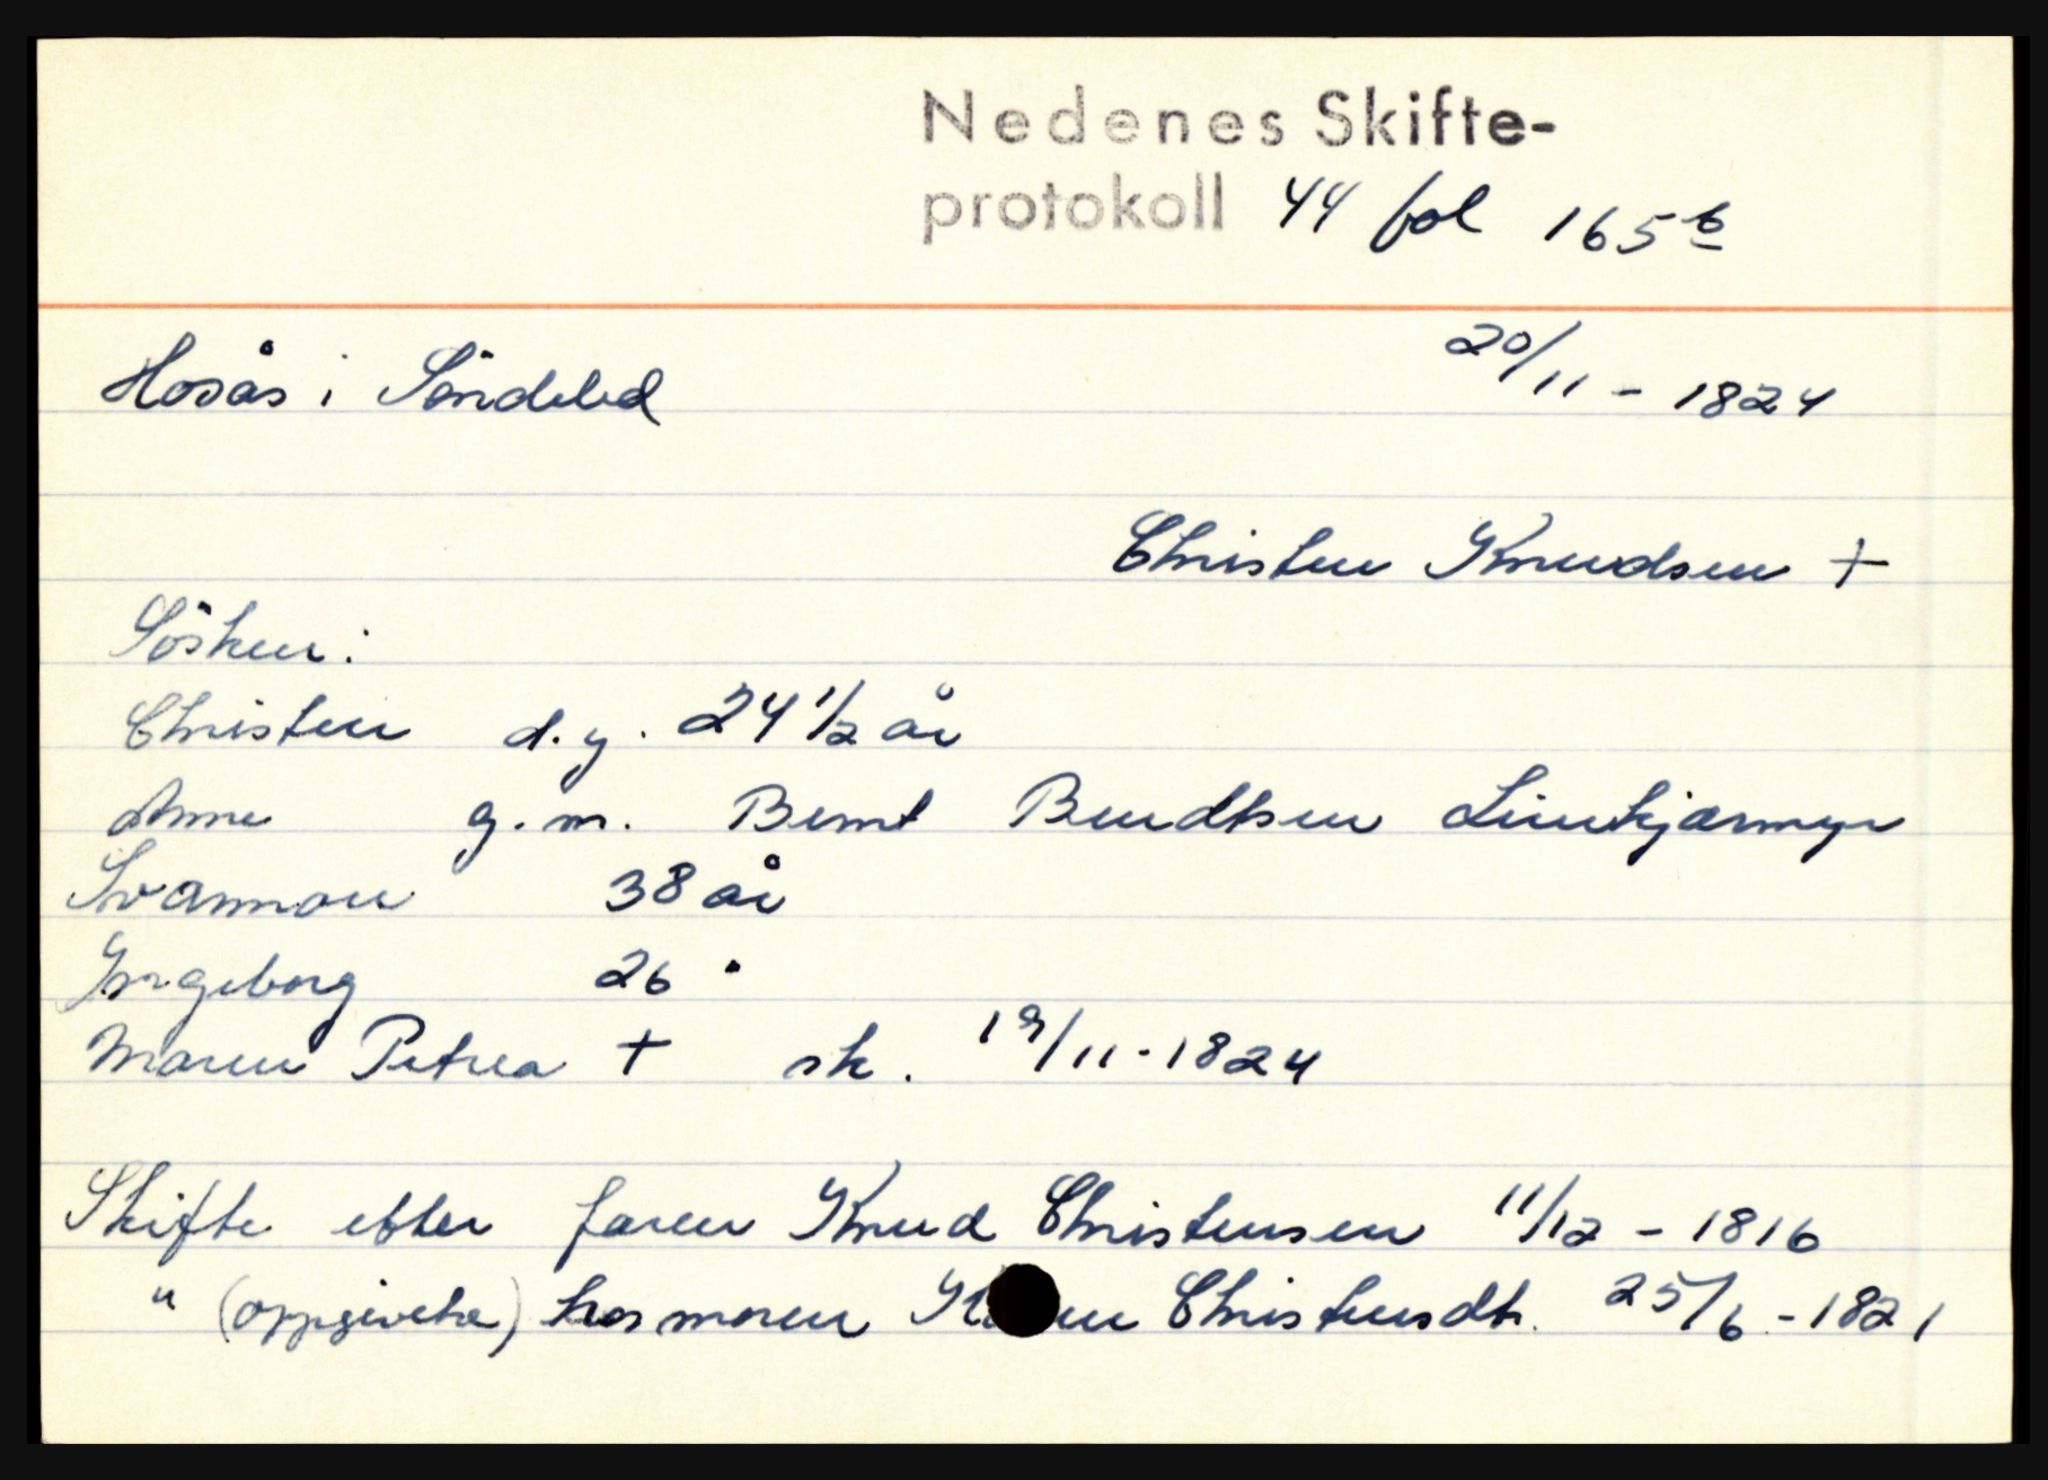 Nedenes Skifte-
protokoll 44 fol 165 b
Hosås i Söndeled 20/11 - 1824
Christen Knudsen +
Sösken:
Christen d.y. 24 1/2 år
Anne g.m. Bernt Bendtsen
Svanmon 38 år
Ingeborg 26 "
Maren Petrea + sk. 19/11-1824
Skifte etter faren Knud Christensen 11/12 - 1816
" (oppgivelse) hos moren Christensdt. 25/6 - 1821